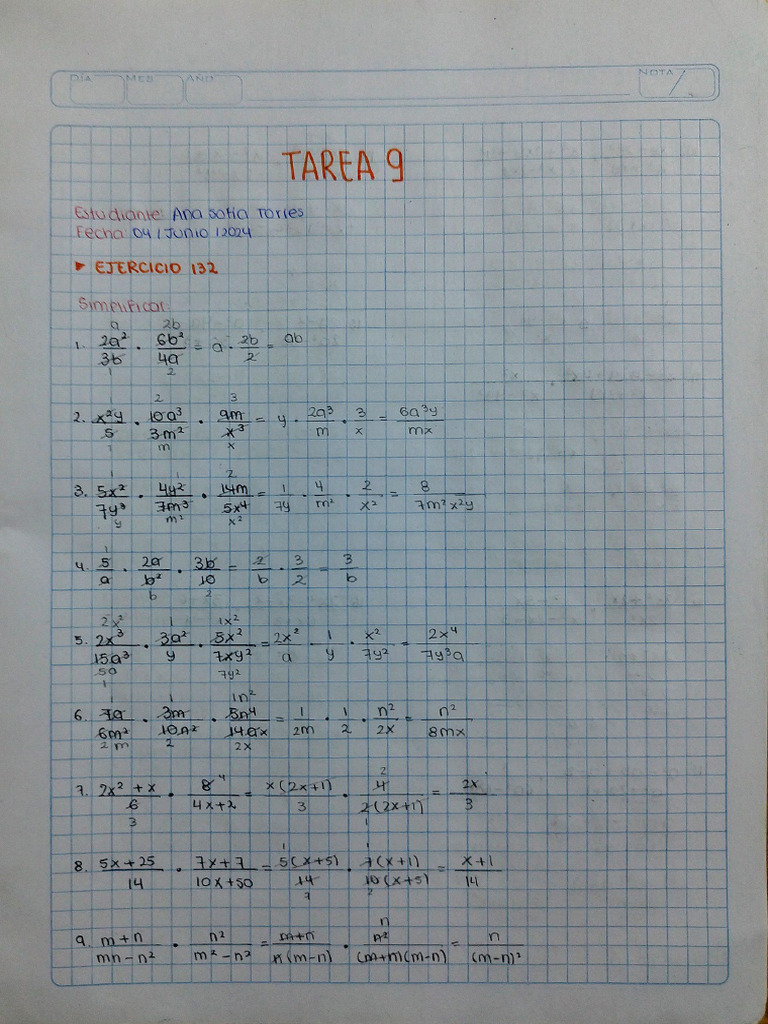 DÍA MES AÑO NOTA
TAREA 9
Estudiante: Ana Sofía Torres
Fecha: 04 / Junio / 2024
▶ EJERCICIO 132
Simplificar:
a 2b
1. 2a²/3b · 6b²/4a = a · 2b/2 = ab
1 2
2 3
2. x²y/5 · 10a³/3m² · 9m/x³ = y · 2a³/m · 3/x = 6a³y/mx
1 m x
1 1 2
3. 5x²/7y³ · 4y²/7m³ · 14m/5x⁴ = 1/7y · 4/m² · 2/x² = 8/7m²x²y
y m² x²
1
4. 5/a · 2a/b² · 3b/10 = 2/b · 3/2 = 3/b
b 2
2x² 1 1x²
5. 2x³/15a³ · 3a²/y · 5x²/7xy² = 2x²/a · 1/y · x²/7y² = 2x⁴/7y³a
5a 7y²
1
1 1 1n²
6. 7a/6m² · 3m/10n² · 5n⁴/14ax = 1/2m · 1/2 · n²/2x = n²/8mx
2m 2 2x
4 2
7. 2x² + x/6 · 8/4x+2 = x(2x+1)/3 · 4/2(2x+1) = 2x/3
3 1
1 1
8. 5x+25/14 · 7x+7/10x+50 = 5(x+5)/14 · 7(x+1)/10(x+5) = x+1/14
7 2
n
9. m+n/mn-n² · n²/m²-n² = m+n/n(m-n) · n²/(m+n)(m-n) = n/(m-n)²